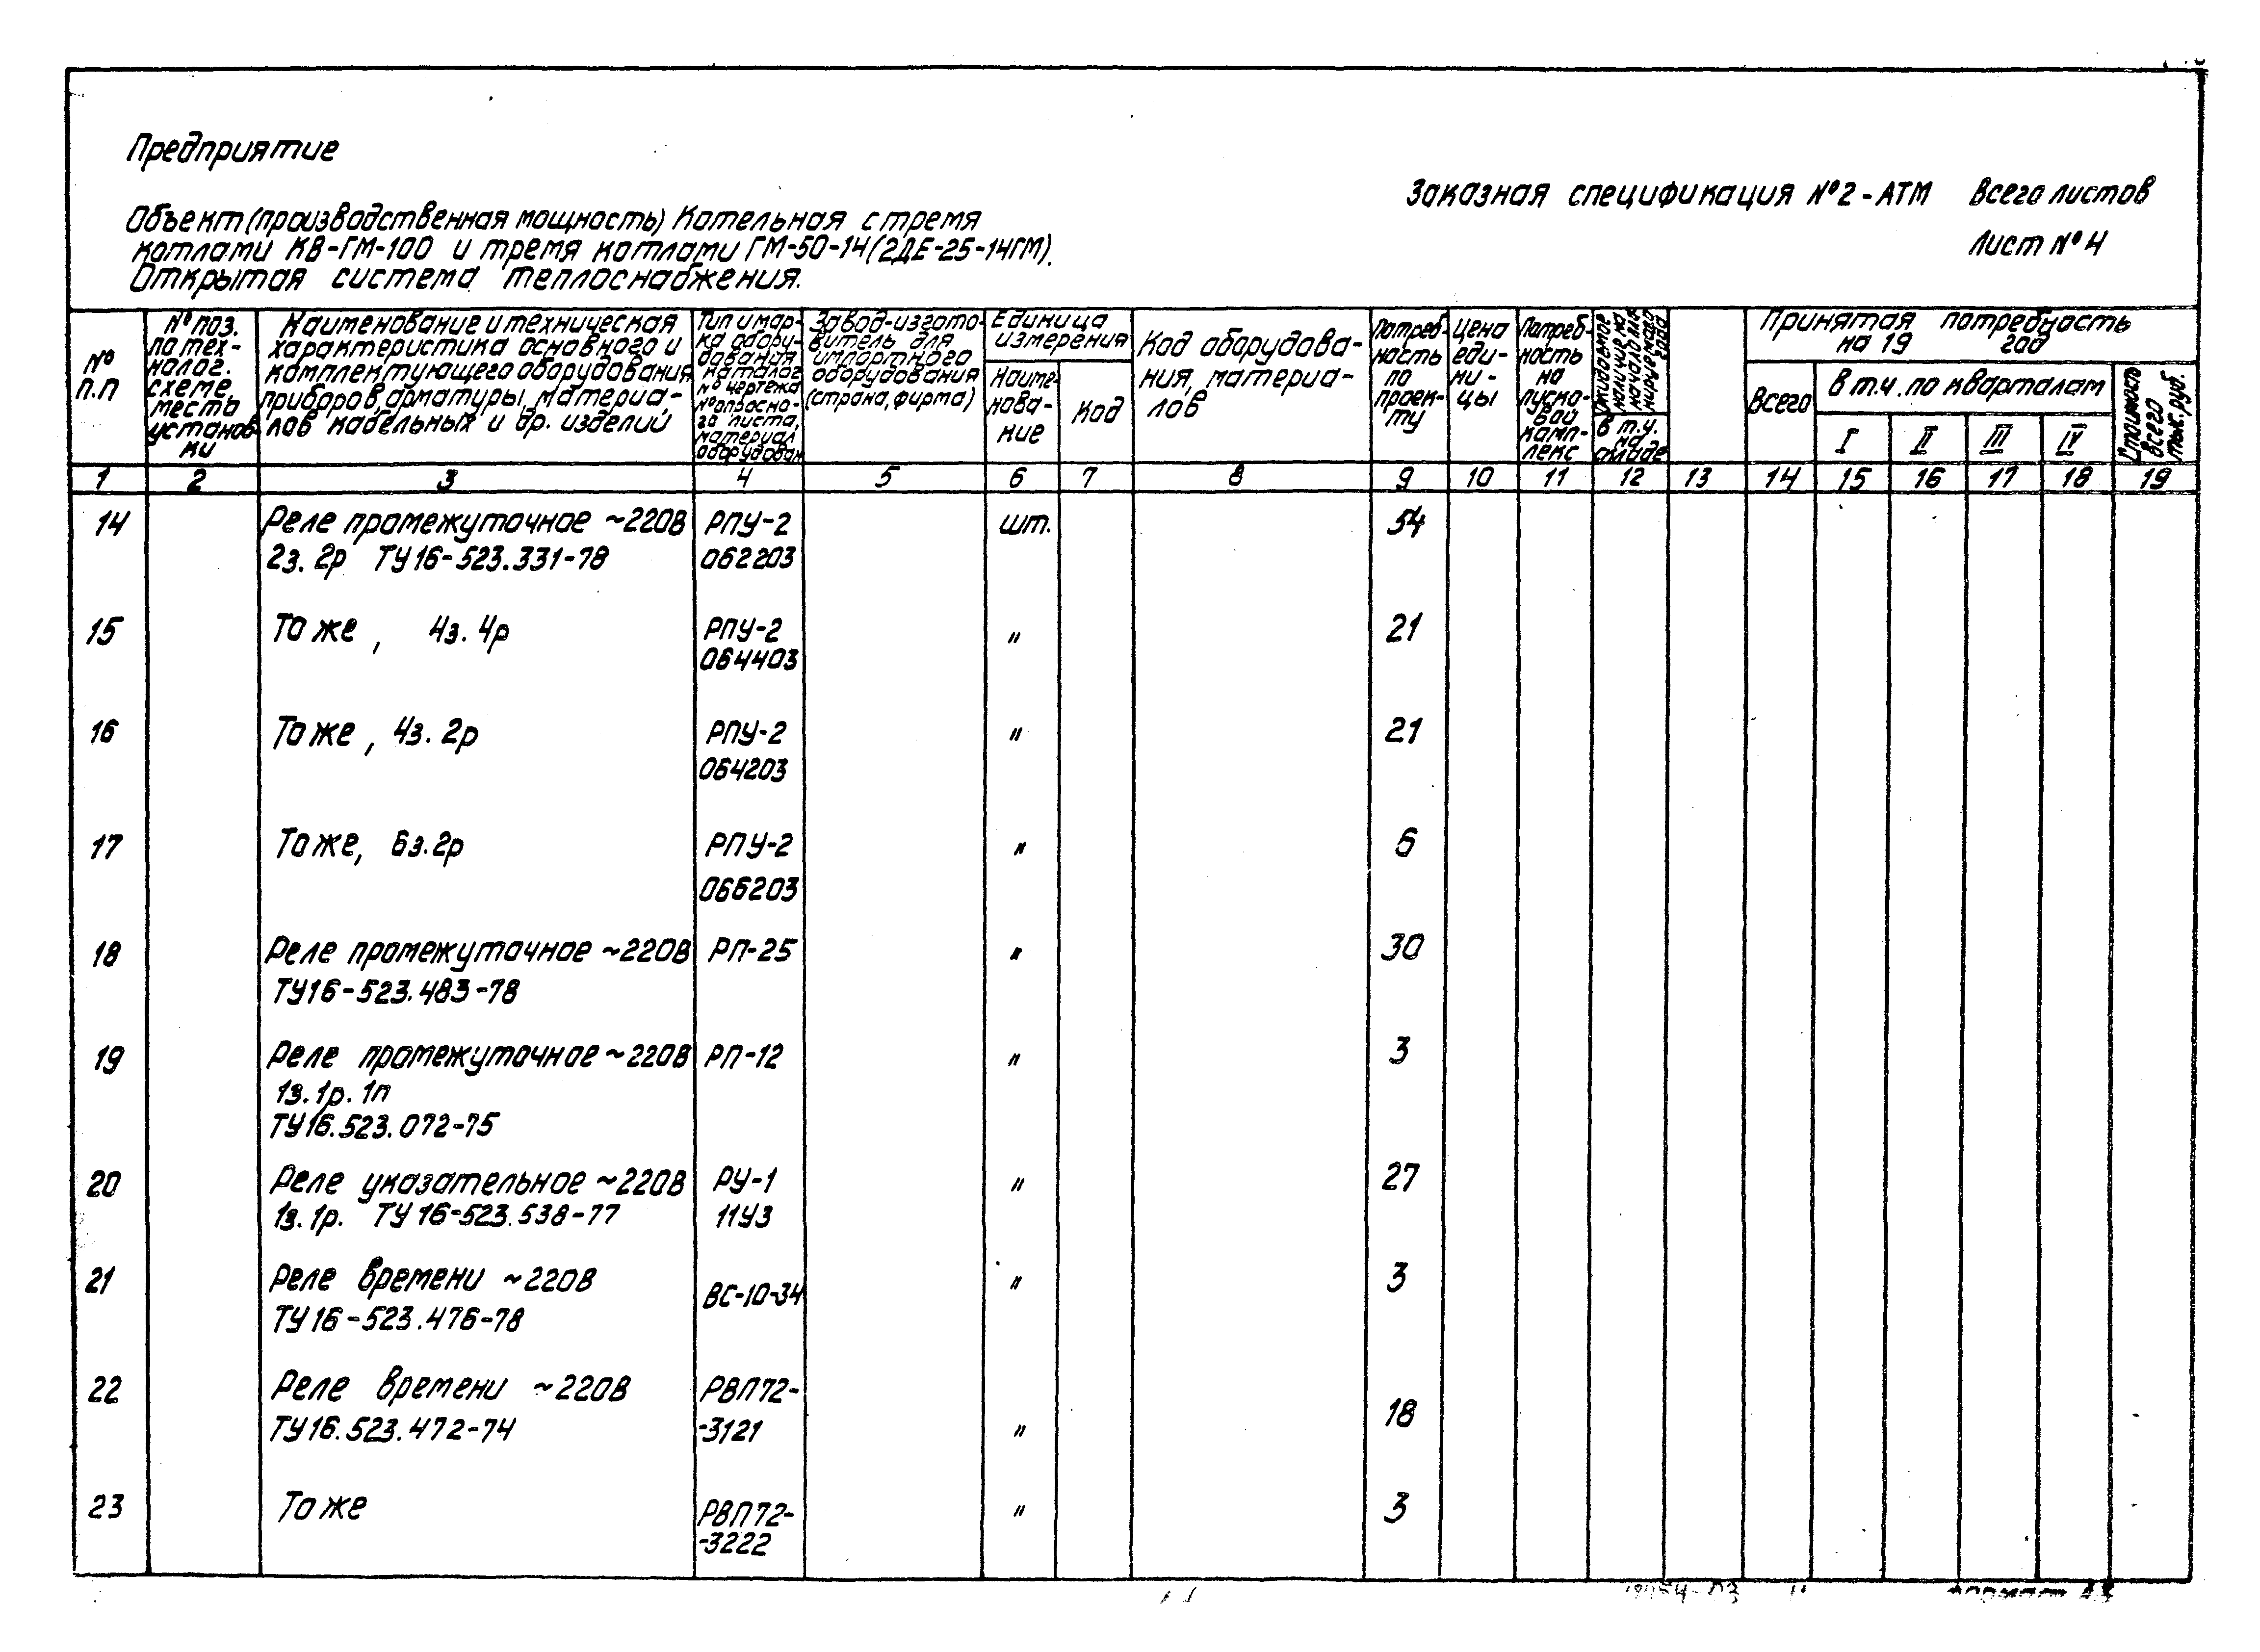 Предприятие
Заказная спецификация №2-АТМ Всего листов
Лист №4
Объект (производственная мощность) Котельная с тремя
котлами КВ-ГМ-100 и тремя котлами ГМ-50-14(2ДЕ-25-14ГМ).
Открытая система теплоснабжения.
№
п.п
№ поз.
по тех-
нолог.
схеме,
место
установ-
ки
Наименование и техническая
характеристика основного и
комплектующего оборудования,
приборов, арматуры, материа-
лов кабельных и др. изделий
Тип и мар-
ка обору-
дования
каталог
№ чертежа
№ опросно-
го листа,
материал
оборудован
Завод-изгото-
витель для
импортного
оборудования
(страна, фирма)
Единица
измерения
Наиме-
нова-
ние
Код
Код оборудова-
ния, материа-
лов
Потреб-
ность
по
проек-
ту
Цена
еди-
ни-
цы
Потреб-
ность
на
пуско-
вой
комп-
лекс
Ожидаемое
наличие на
начало пла-
нируемого
года
в т.ч.
на
складе
Принятая потребность
на 19 год
Всего
в т.ч. по кварталам
I II III IV
Стоимость
всего
тыс.руб.
1 2 3 4 5 6 7 8 9 10 11 12 13 14 15 16 17 18 19
14 Реле промежуточное ~220В РПУ-2 шт. 54
2з. 2р ТУ16-523.331-78 062203
15 То же, 4з. 4р РПУ-2 " 21
064403
16 То же, 4з. 2р РПУ-2 " 21
064203
17 То же, 6з. 2р РПУ-2 " 6
066203
18 Реле промежуточное ~220В РП-25 " 30
ТУ16-523.483-78
19 Реле промежуточное ~220В РП-12 " 3
1з. 1р. 1п
ТУ16.523.072-75
20 Реле указательное ~220В РУ-1 " 27
1з. 1р. ТУ 16-523.538-77 11У3
21 Реле времени ~220В ВС-10-34 " 3
ТУ16-523.476-78
22 Реле времени ~220В РВП72- 18
ТУ16.523.472-74 -3121 "
23 То же РВП72- " 3
-3222
формат А3